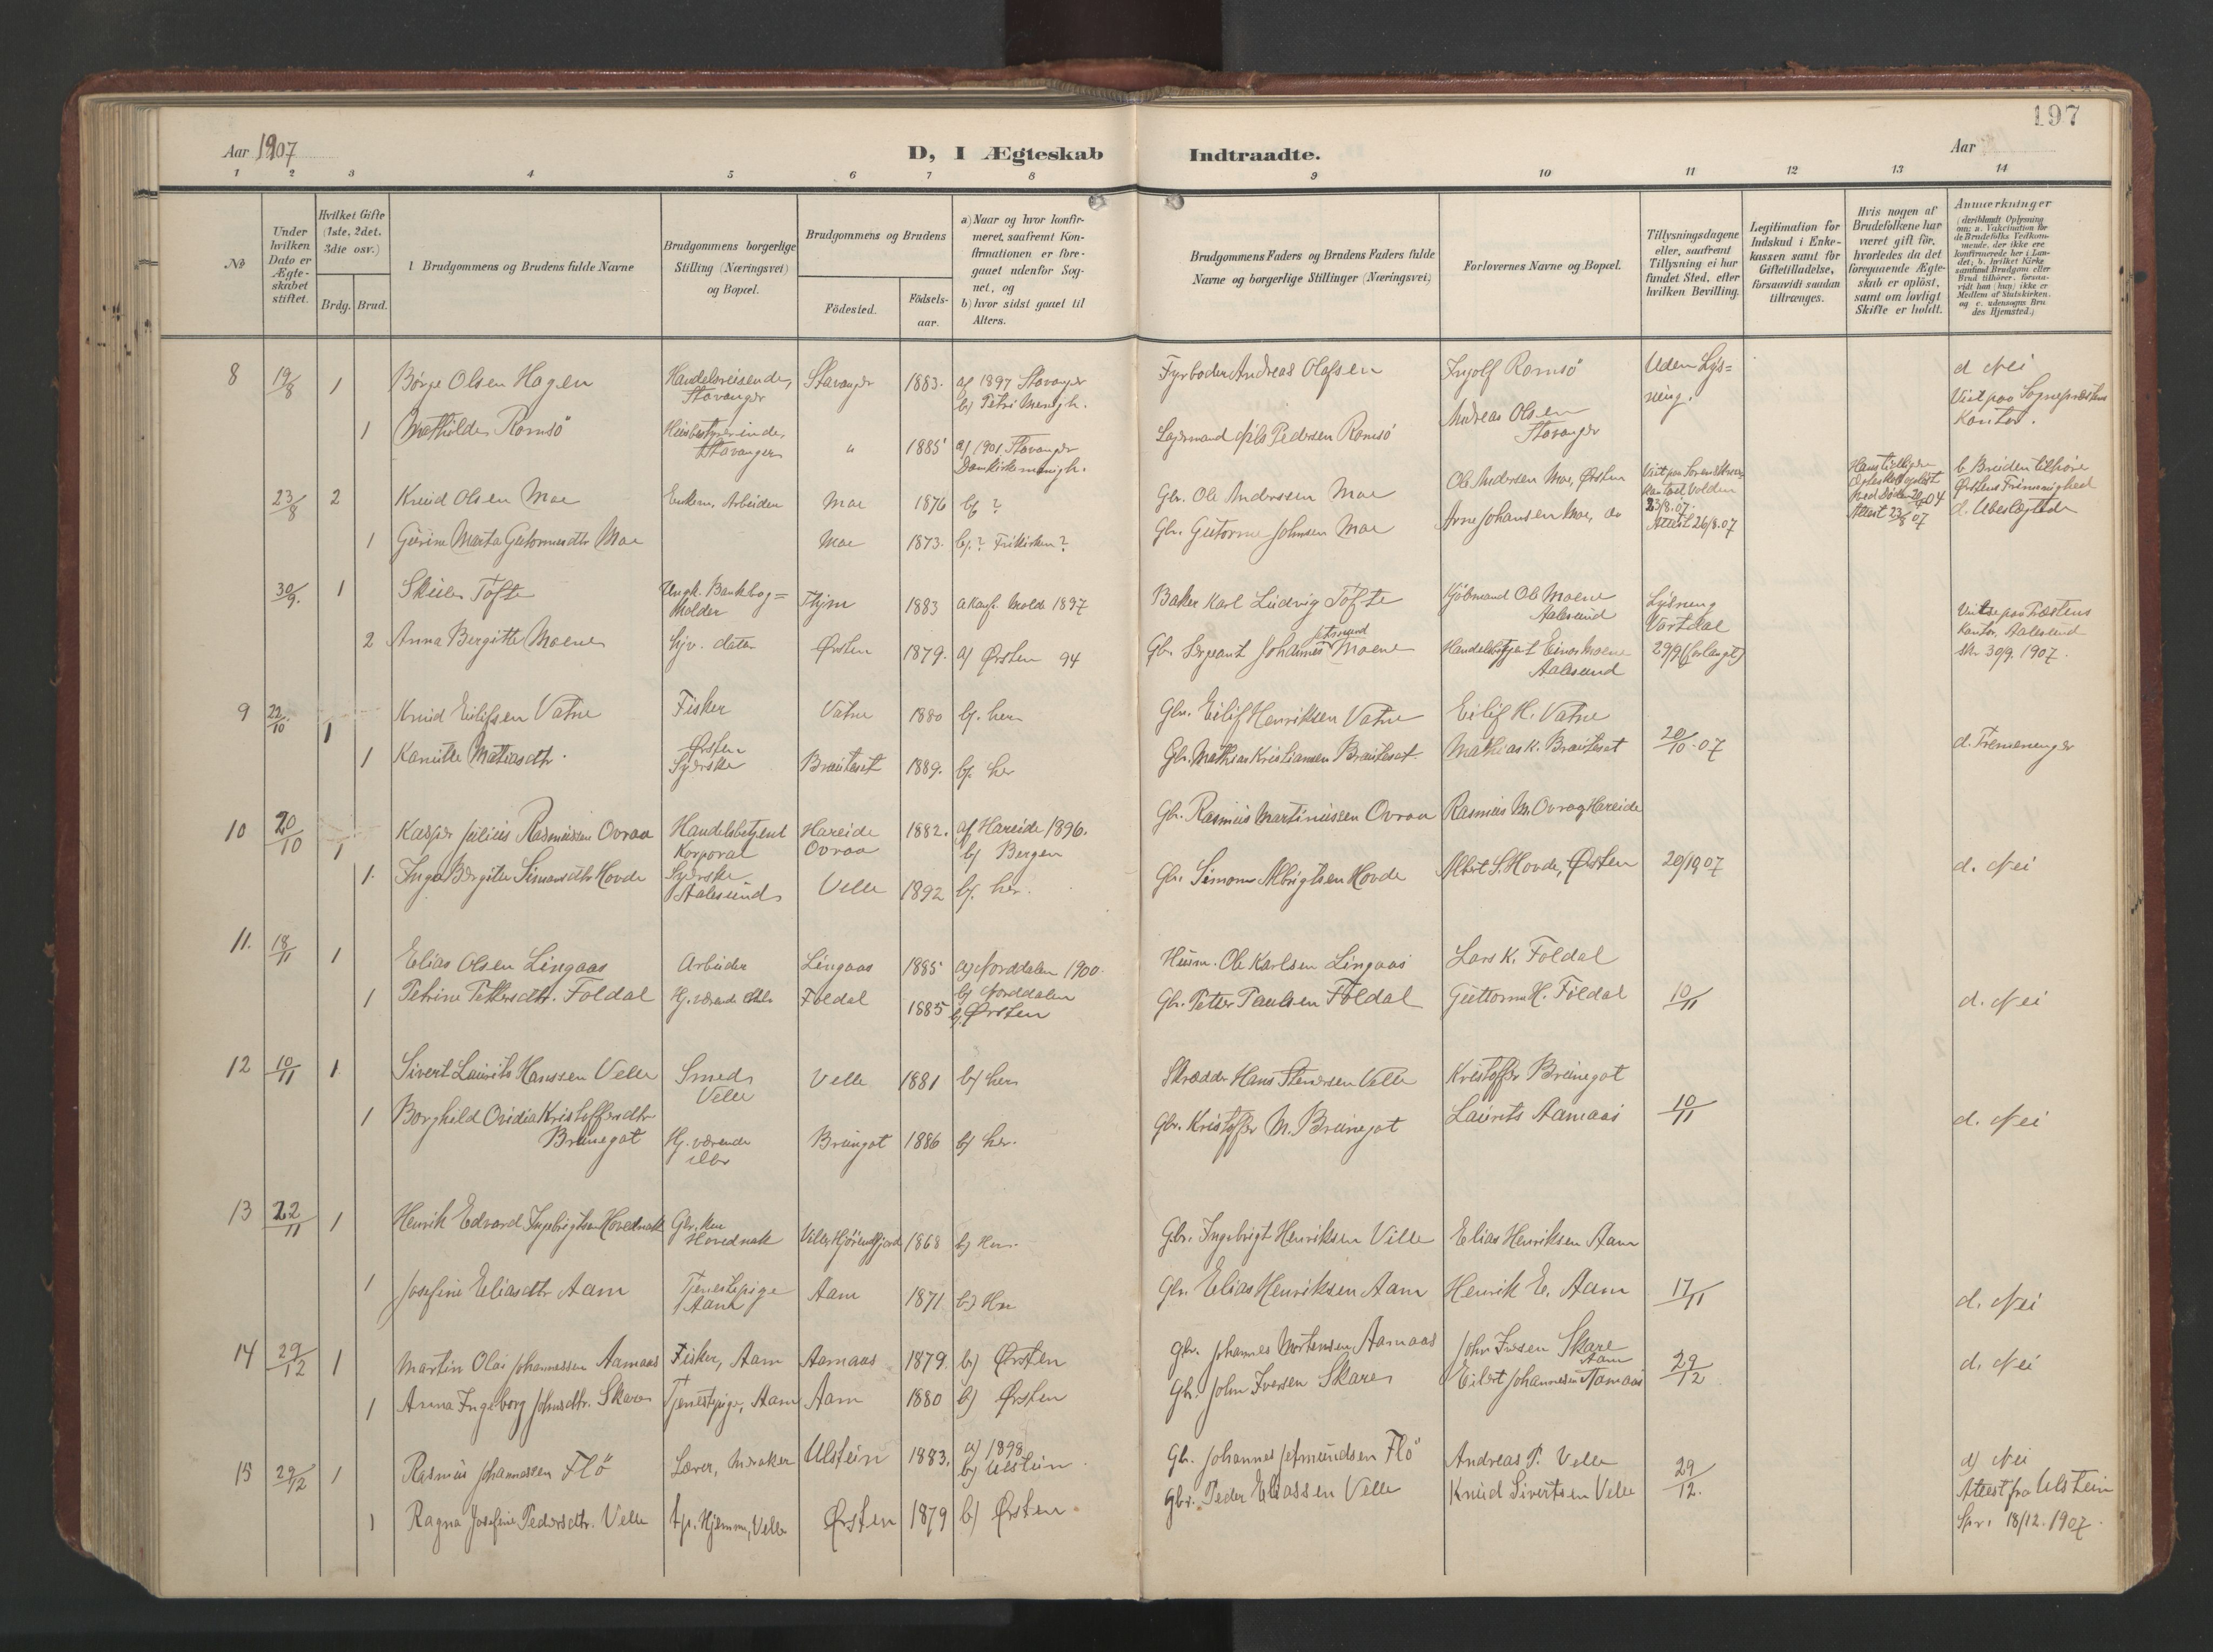 197
Aar 1907
D, I Ægteskab Indtraadte.
Aar
1 2 3 4 5 6 7 8 9 10 11 12 13 14
No
Under hvilken Dato er Ægteskabet stiftet.
Hvilket Gifte (1ste, 2det, 3die osv.)
Brdg. Brud.
Brudgommens og Brudens fulde Navne
Brudgommens borgerlige Stilling (Næringsvei) og Bopæl.
Brudgommens og Brudens
Födested.
Födselsaar.
a) Naar og hvor konfirmeret, saafremt Konfirmationen er foregaaet udenfor Sognet, og
b) hvor sidst gaaet til Alters.
Brudgommens Faders og Brudens Faders fulde Navne og borgerlige Stillinger (Næringsvei)
Forlovernes Navne og Bopæl.
Tillysningsdagene eller, saafremt Tillysning ei har fundet Sted, efter hvilken Bevilling.
Legitimation for Indskud i Enkekassen samt for Giftetilladelse, forsaavidt saadan tiltrænges.
Hvis nogen af Brudefolkene har været gift för, hvorledes da det foregaaende Ægteskab er oplöst, samt om lovligt Skifte er holdt.
Anmærkninger (deriblandt Oplysning om: a. Vakcination for de Brudefolks Vedkommende, der ikke ere konfirmerede her i Landet; b. hvilket Kirkesamfund Brudgom eller Brud tilhörer, forsaavidt han (hun) ikke er Medlem af Statskirken, og c. udensogns Brudes Hjemsted.)
8 19/8 1 Börge Olsen Hagen Handelsreisende, Stavanger Stavanger 1883. a) 1897 Stavanger b) Petri Menigh. Fyrböder Andreas Olafsen Ingolf Romsö Uden Lysning. d Nei Viet paa Sognepræstens Kontor.
1 Mathilde Romsö Husbestyrerinde, Stavanger " 1885 a) 1901 Stavanger Domkirkemenigh. Lagermand Nils Pedersen Romsö Andreas Olsen Stavanger
23/8 2 Knud Olsen Moe Enkem, Arbeider Moe 1876 b) ? Gbr. Ole Anderssen Moe Ole Andersen Moe, Örsten Viet paa Sorenskriverkontoret Volden 23/8.07. Attest 26/8.07 Attest 23/8 07 b Bruden tilhörer Örstens Frimenighed d. Ubeslægtede
1 Gurine Marta Gutormsdtr Moe Moe 1873. b). ? Frikirken? Gbr. Gutorm Johnsen Moe Arne Johansen Moe, do
30/9. 1 Skule Tofte Ungk. Bankbogholder 1883 a Konf. Molde 1897 Baker Karl Ludvig Tofte Kjöbmand Ole Moene Aalesund Lysning Vartdal
2 Anna Bergitte Moene Hjv. datter Örsten 1879. a) Örsten 94 Gbr. Sergeant Johannes Jetmund Moene Handelsbetjent Einar Moene Aalesund 29/9 (forlangt) Viet paa Præstens Kontor, Aalesund 30/9. 1907.
9 22/10 1 Knud Eilifsen Vatne Fisker Vatne 1880 b). her Gbr. Eilif Henriksen Vatne Eilif H. Vatne
1 Kamille Mathiasdtr. Örsten Syerske Brauteset 1889. b). her Gbr. Mathias Kristiansen Brauteset. Mathias K. Brauteset 20/10-07 d. Tremenninger
10 20/10 1 Kasper Julius Rasmussen Ovraa Handelsbetjent Korporal Hareide Ovraa 1882. a) Hareide 1896. b) Bergen Gbr. Rasmus Martinussen Ovraa Rasmus M. Ovraa, Hareide
1. Inga Bergitte Simonsdtr Hovde Syerske Aalesund Velle 1892 b). her. Gbr. Simon Albrigtsen Hovde Albert S. Hovde, Örsten 20/10 07 d. Nei
11. 18/11 1 Elias Olsen Lingaas Arbeider Lingaas 1885 a) Norddalen 1900. b) Norddalen Husm. Ole Karlsen Lingaas Lars K. Foldal
1 Petrine Pettersdtr. Foldal Hj. værende Foldal 1885 b) Örsten Gbr. Petter Paulsen Foldal Guttorm H. Foldal 10/11 d. Nei
12 10/11 1 Sivert Laurits Hanssen Velle Smed Velle Velle 1881 b) her Skrædder Hans Stenersen Velle Kristoffer Brunegot
1 Borghild Ovidia Kristoffersdtr Brunegot Hj. værende Brungot 1886 b) her. Gbr. Kristoffer M. Brunegot Laurits Aamaas 10/11 d. Nei
13 22/11 1 Henrik Edvard Ingebrigtsen Hovednak Gbr. Hovednak Velle, Hjörundfjord 1868 b) Her. Gbr. Ingebrigt Henriksen Ville Elias Henriksen Aam
1 Josefine Eliasdtr Aam Tjenestepige Aam Aam 1871 b) Her Gbr. Elias Henriksen Aam Henrik E. Aam 17/11 d. Nei
14 29/12 1 Martin Olai Johannessen Aamaas Fisker, Aam Aamaas 1879. b) Örsten Gbr. Johannes Mortensen Aamaas John Iversen Skare Aam d. Nei
1 Anna Ingeborg Johnsdtr. Skare Tjenestepige, Aam Aam 1880 b) Örsten Gbr. John Iversen Skare Eilert Johannessen Aamaas 29/12
15 29/12 1 Rasmus Johannessen Flö Lærer, Meraker Ulstein 1883. a) 1898 b) Ulstein Gbr. Johannes Jetmundsen Flö Andreas P. Velle d) Nei Attest fra Ulstein Spr. 18/12.1907.
1 Ragna Josefine Pedersdtr. Velle Hjemme, Velle Örsten 1879 b) Örsten. Gbr. Peder Eliassen Velle Knud Sivertsen Velle 29/12.